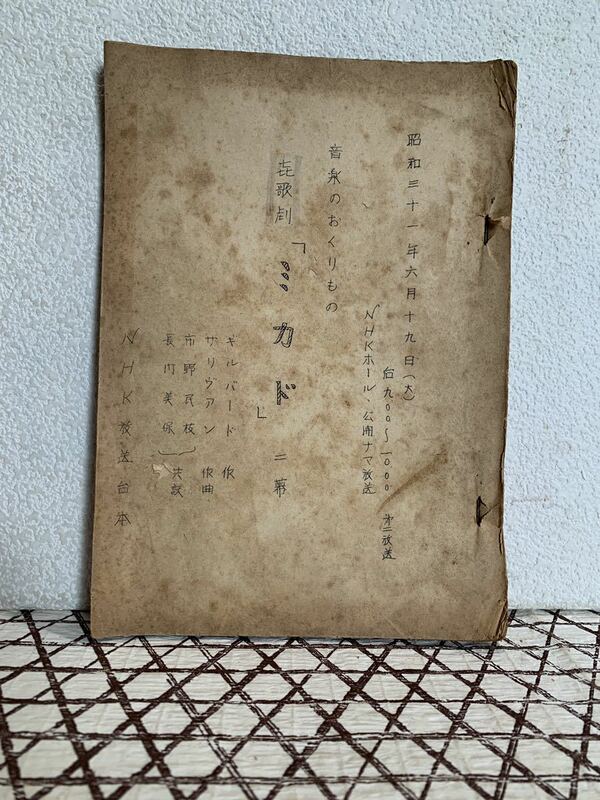 昭和三十一年六月十九日(火)
后九00〜一000 第二放送
NHKホール 公開ナマ放送
音楽のおくりもの
喜歌劇「ミカド」二幕
ギルバード 作
サリヴァン 作曲
市野瓦枝
長門美保 共訳
NHK放送台本